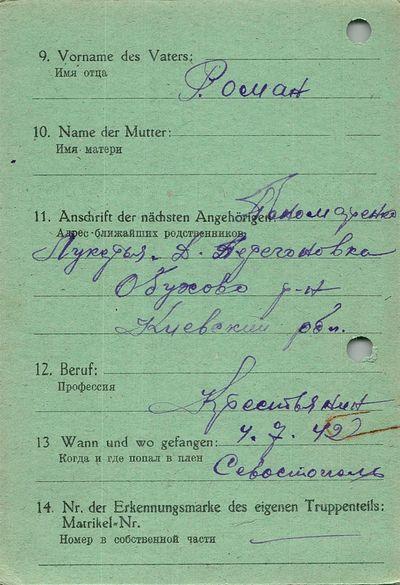 9. Vorname des Vaters:
Имя отца
Роман
10. Name der Mutter:
Имя матери
11. Anschrift der nächsten Angehörigen Пономаренко
Адрес ближайших родственников
Лукерья. д. Перегоновка
Обухово р-н
Киевский обл.
12. Beruf:
Профессия
Крестьянин
13 Wann und wo gefangen: 4. 7. 42
Когда и где попал в плен
Севостополь
14. Nr. der Erkennungsmarke des eigenen Truppenteils:
Matrikel-Nr.
Номер в собственной части